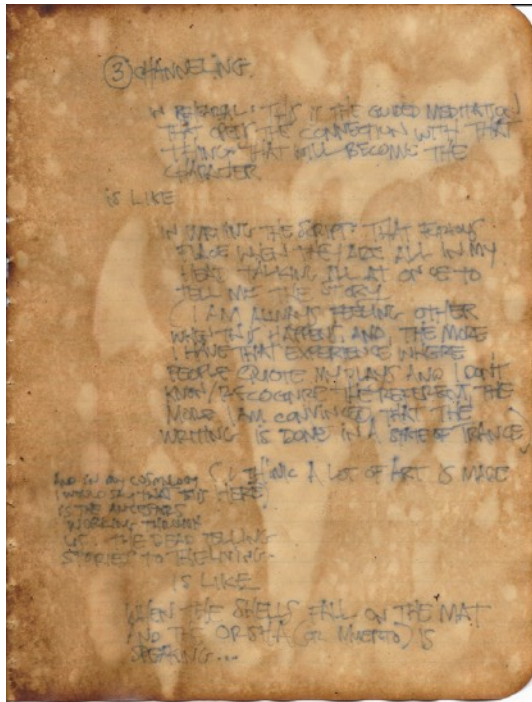 ③ CHANNELING.
IN REHEARSAL: THIS IS THE GUIDED MEDITATION
THAT OPENS THE CONNECTION WITH THAT
THING THAT WILL BECOME THE
CHARACTER
IS LIKE
IN WRITING THE SCRIPT: THAT
PLACE WHEN THEY ARE ALL IN MY
HEAD TALKING ALL AT ONCE TO
TELL ME THE STORY
(I AM ALWAYS FEELING OTHER
WHEN THIS HAPPENS, AND, THE MORE
I HAVE THAT EXPERIENCE WHERE
PEOPLE QUOTE MY PLAYS AND I DON'T
KNOW/RECOGNIZE THE REFERENT, THE
MORE I AM CONVINCED THAT THE
WRITING IS DONE IN A STATE OF TRANCE)
(I THINK A LOT OF ART IS MADE
HERE)
AND IN MY COSMOLOGY
I WOULD SAY THAT THIS
IS THE ANCESTORS
WORKING THROUGH
US... THE DEAD TELLING
STORIES TO THE LIVING.
IS LIKE
WHEN THE SHELLS FALL ON THE MAT
AND THE ORISHA (OR MUERTO) IS
SPEAKING...